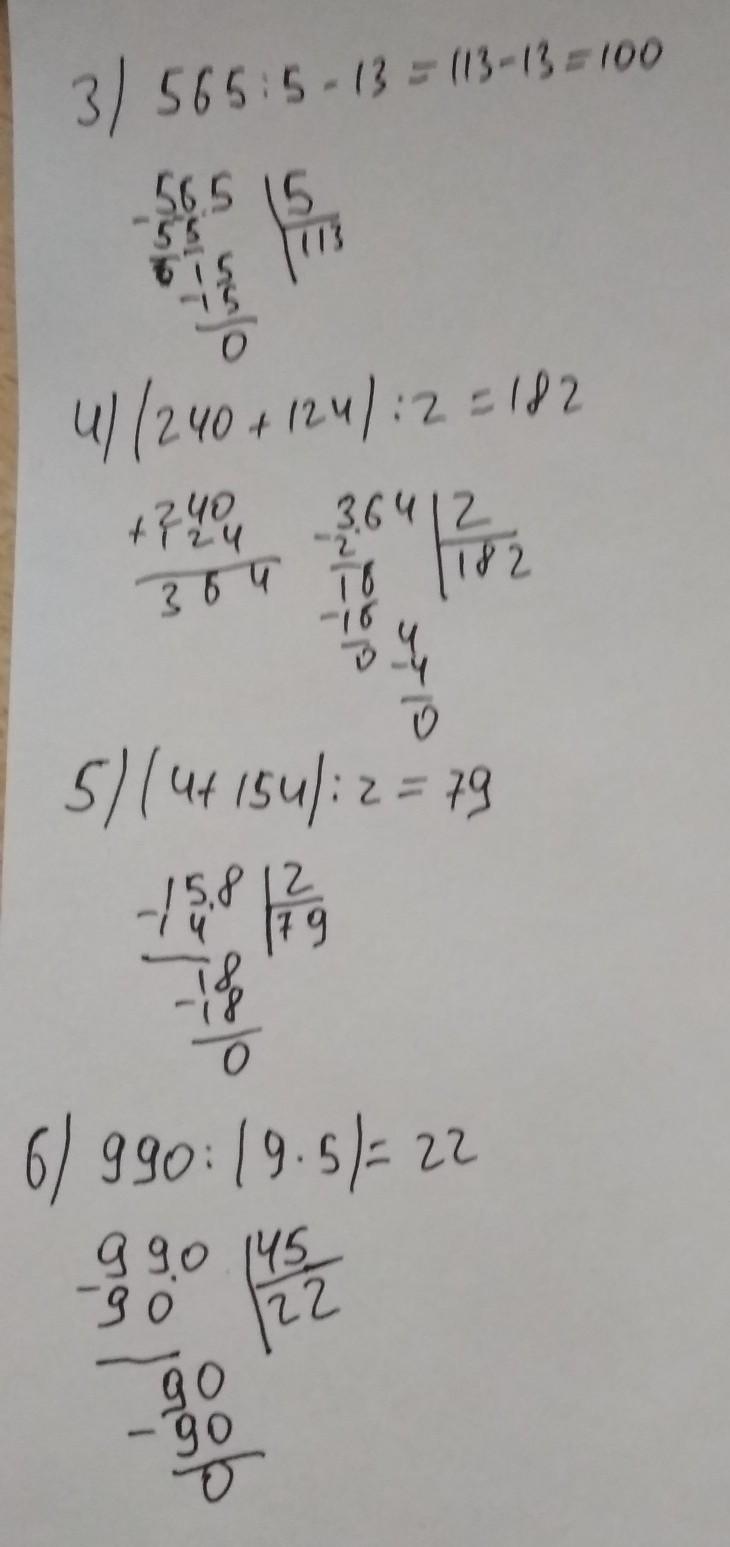 3) 565 : 5 - 13 = 113 - 13 = 100
565 | 5
- 55 | 113
15
- 15
0
4) (240 + 124) : 2 = 182
+ 240 364 | 2
124 - 2 | 182
364 16
- 16
0 4
- 4
0
5) (4 + 154) : 2 = 79
- 158 | 2
14 | 79
18
- 18
0
6) 990 : (9 · 5) = 22
990 | 45
- 90 | 22
90
- 90
0